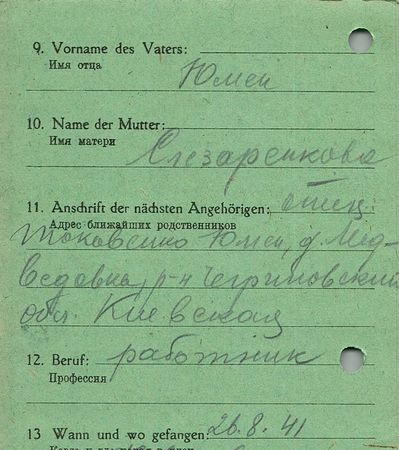 9. Vorname des Vaters:
Имя отца
Юмен
10. Name der Mutter:
Имя матери
Слезаренкова
11. Anschrift der nächsten Angehörigen: отец
Адрес ближайших родственников
Токовенко Юмен, д. Мед-
ведовка, р-н Чегриновский
обл. Киевская
12. Beruf: работник
Профессия
13 Wann und wo gefangen: 26.8.41